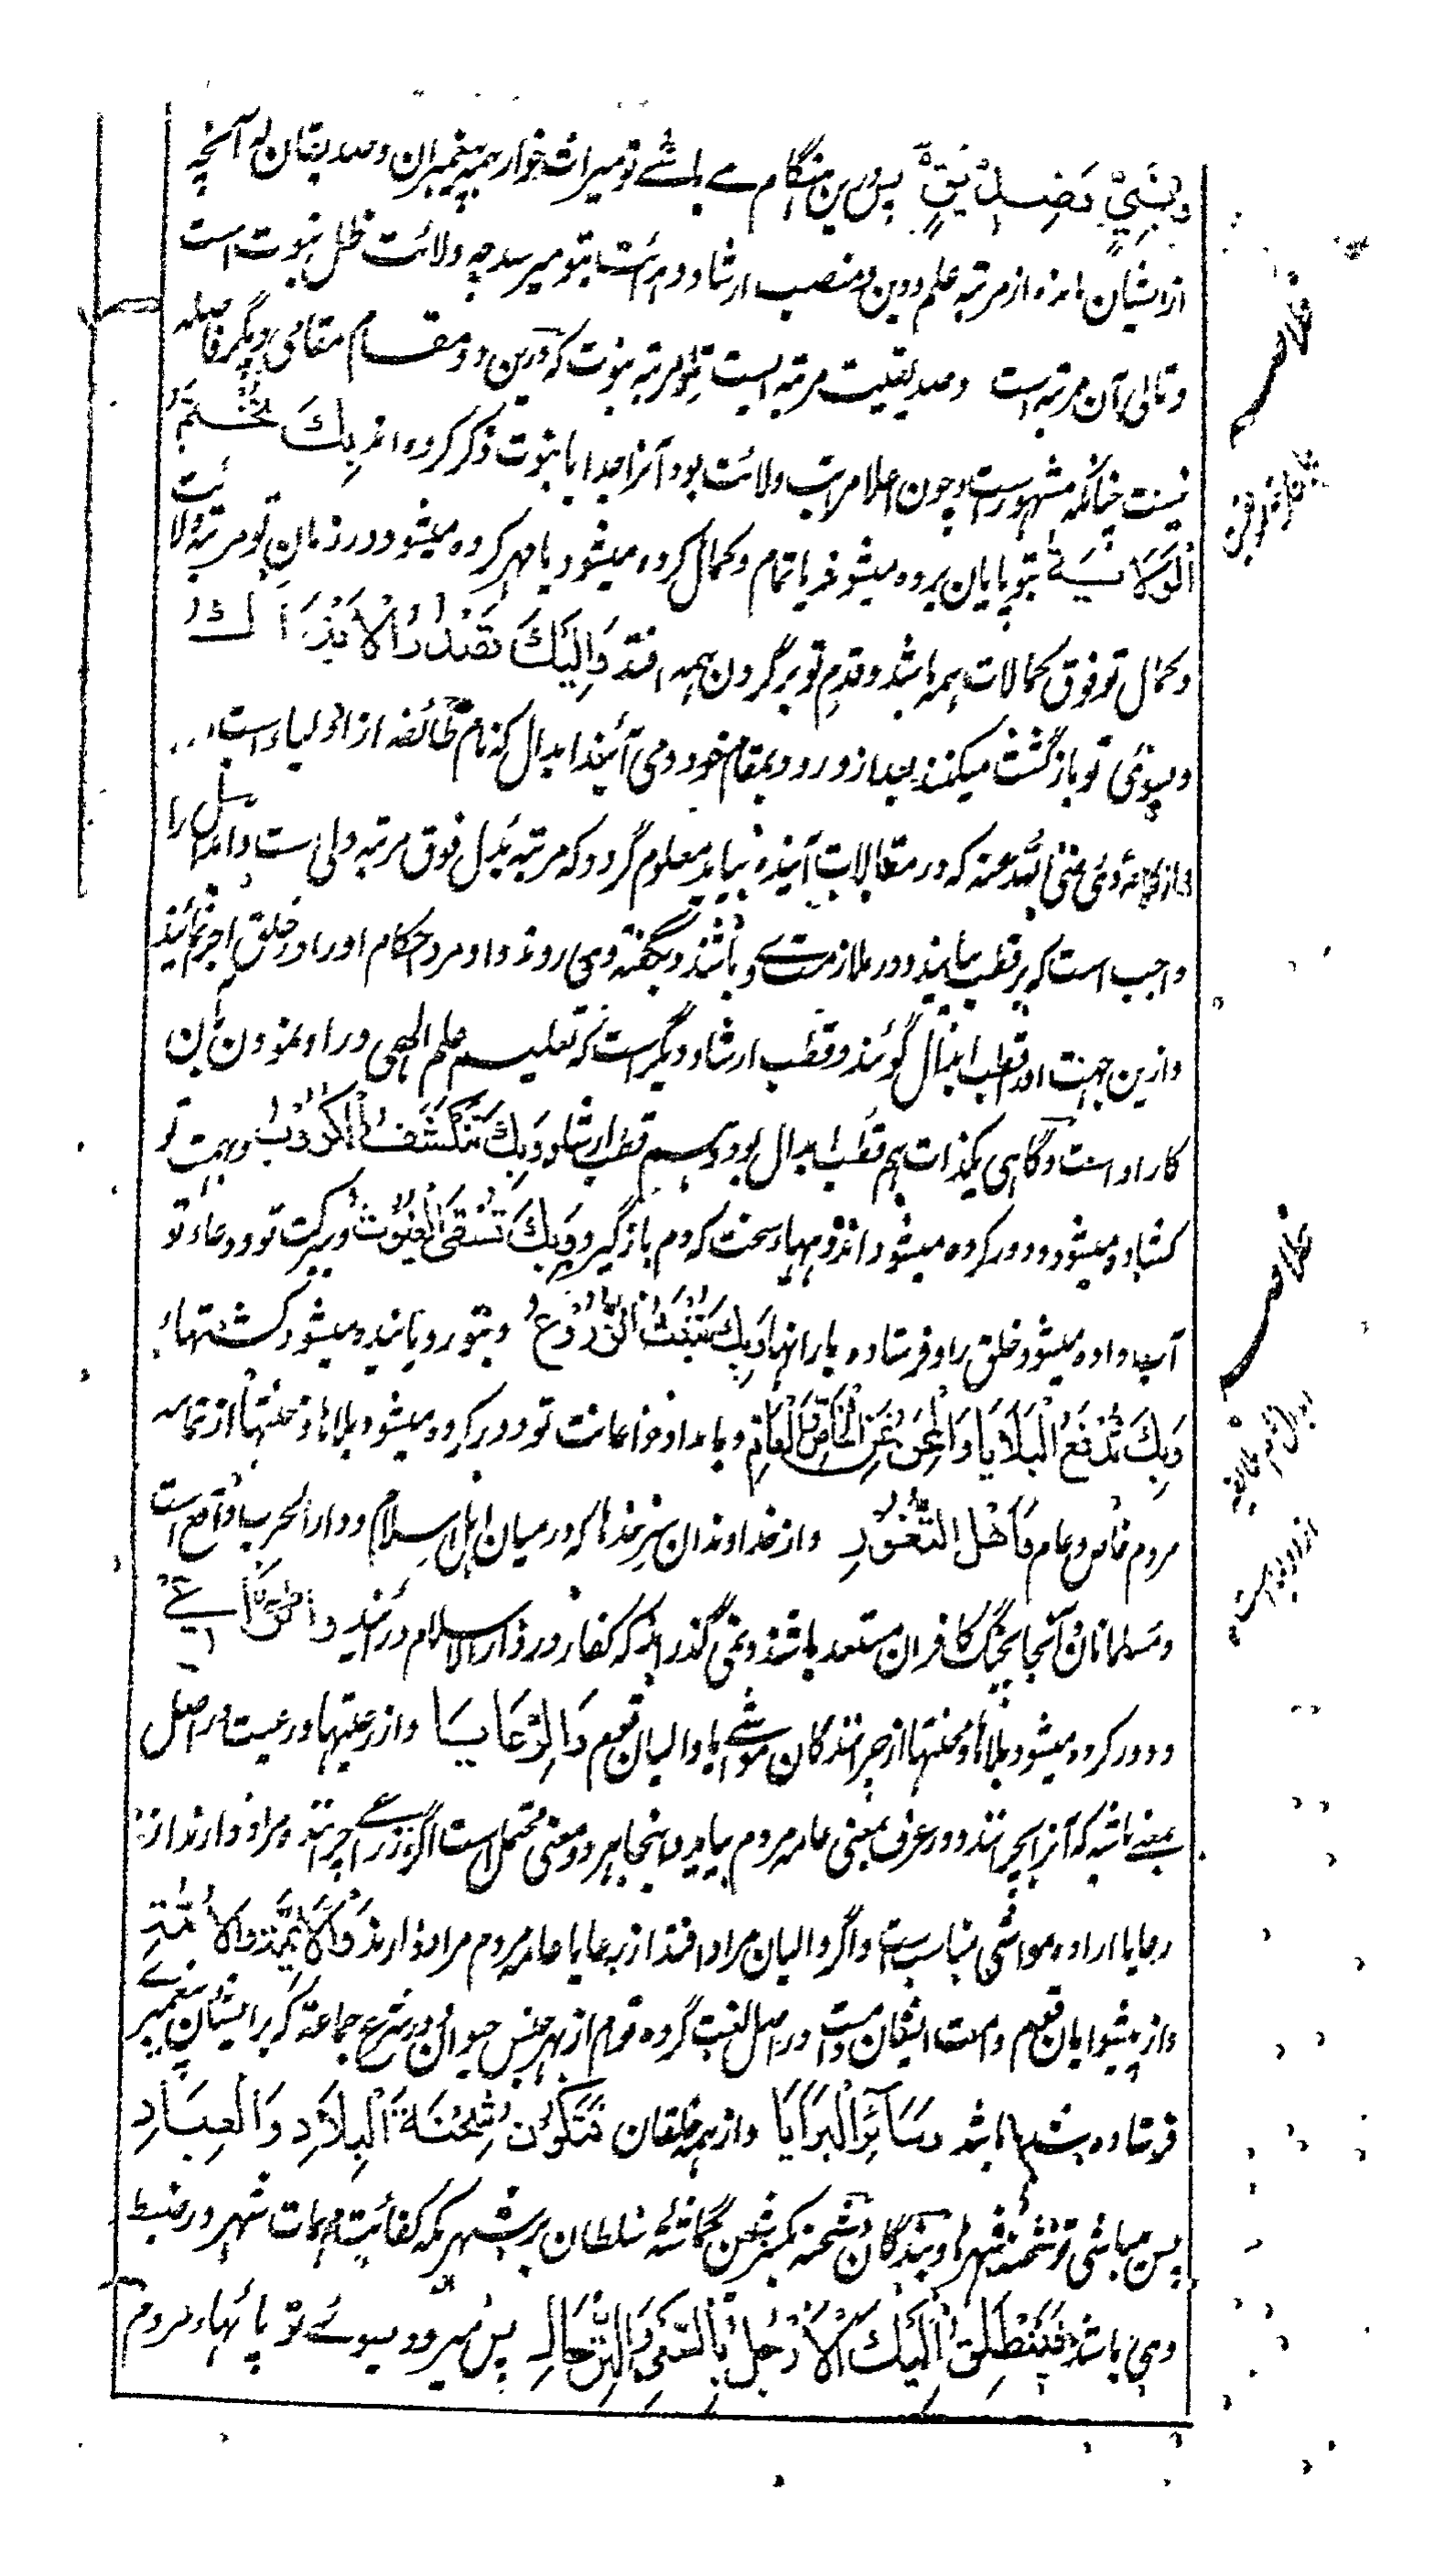 و نبی و صدیق پس درین هنگام می باشی تو میراث خوار همه پیغمبران و صدیقان که آنچه
از ایشان ماند از مرتبه علم و دین و منصب ارشاد و هدائت بتو میرسد چه ولائت ظل نبوت است
و تالی آن مرتبه است و صدیقیت مرتبه ایست تلو مرتبه نبوت که درین دو مقام مقامی دیگر فاصله
نیست چنانکه مشهور است و چون اعلا مراتب ولائت بود آنرا جدا با نبوت ذکر کرده اند بِكَ تُخْتَمُ
الْوَلَايَةُ بتو پایان برده میشود یا تمام و کمال کرده میشود یا مهر کرده میشود و در زمان تو مرتبه ولائت
و کمال تو فوق کمالات همه باشد و قدم تو بر گردن همه افتد وَاِلَيْكَ تَصْدُرُ الْاَبْدَالُ
و بسوی تو بازگشت میکنند بعد از ورود بمقام خود و می آیند ابدال که نام طائفه از اولیاء است
و از کلام وی رضی الله عنه که در مقالات آینده بیاید معلوم گردد که مرتبه بدل فوق مرتبه ولی است و ابدال را
واجب است که بر قطب بیایند و در ملازمت وی باشند و بگفته وی روند و او مر احکام او را در خلق اجرا نمایند
و ازین جهت او را قطب ابدال گویند و قطب ارشاد دیگر است که تعلیم علم الهی و راه نمودن بآن
کار اوست و گاهی یکذات هم قطب ابدال بود و هم قطب ارشاد وَبِكَ تَنْكَشِفُ الْكُرُوْبُ و بهمت تو
کشاده میشود و دور کرده میشود اندوههاء سخت که دم بازگیرد وَبِكَ تُسْقَى الْغُيُوْثُ و ببرکت تو و دعاء تو
آب داده میشود خلق را و فرستاده بارانها وَبِكَ تُنْبَتُ الزُّرُوْعُ و بتو رویانیده میشود کشتهاء
وَبِكَ تُدْفَعُ الْبَلَايَا وَالْمِحَنُ عَنِ الْخَاصِّ وَالْعَامِّ و بامداد و اعانت تو دور کرده میشود بلاها و محنتها از تمامه
مردم خاص و عام وَاَهْلِ الثُّغُوْرِ و از خداوندان سرحدها که در میان اهل اسلام و دار الحرب واقع است
و مسلمانان آنجا بجنگ کافران مستعد باشند و نمی گذرانند که کفار در دار الاسلام درآیند وَالرَّاعِيْ
و دور کرده میشود بلاها و محنتها از چرانندگان مواشی یا والیان قوم وَالرَّعَايَا و از رعیتها و رعیت در اصل
بمعنی ماشیه که آنرا بچرانند و در عرف بمعنی عامه مردم بیاید و اینجا هر دو معنی محتمل است اگر از راعی چراننده مراد دارند از
رعایا اراده مواشی مناسب است و اگر والیان مراد افتد از رعایا عامه مردم مراد دارند وَالْاَئِمَّةِ وَالْاُمَّةِ
و از پیشوایان قوم و امت ایشان و امت در اصل لغت گروه قوم از هر جنس حیوان و در شرع جماعة که بر ایشان پیغمبری
فرستاده شده باشد وَسَائِرِ الْبَرَايَا و از همه خلقان فَتَكُوْنُ شِحْنَةَ الْبِلَادِ وَالْعِبَادِ
پس میباشی تو شحنه شهرها و بندگان و شحنه بکسر شین گماشته سلطان بر شهر که کفایت مهمات شهر و ضبط
وی باشد فَيَنْطَلِقُ اِلَيْكَ الْاَرْجُلُ بِالسَّعْيِ وَالتَّرْحَالِ پس میرود بسوی تو پائهاء مردم